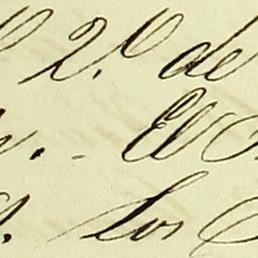 2.º de
El
Los